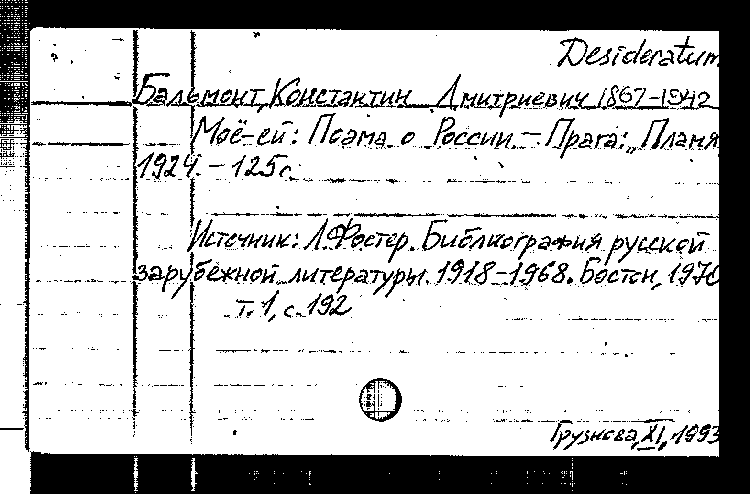 Desideratum
Бальмонт, Константин Дмитриевич 1867-1942
Моё-ей: Поэма о России. - Прага: „Пламя
1924. - 125с.
Источник: Л.Фостер. Библиография русской
зарубежной литературы. 1918-1968. Бостон, 1970
т. 1, с. 192
Грузнова, XI, 1993